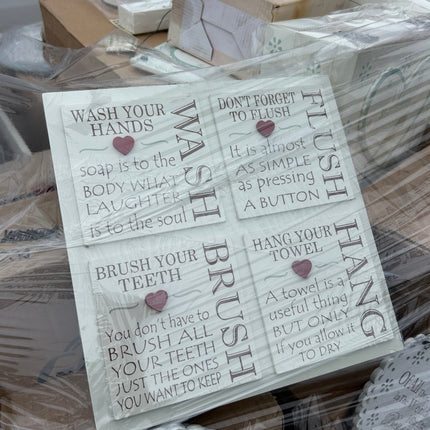 WASH YOUR
HANDS
soap is to the
BODY WHAT
LAUGHTER
is to the soul
WASH
DON'T FORGET
TO FLUSH
It is almost
AS SIMPLE
as pressing
A BUTTON
FLUSH
BRUSH YOUR
TEETH
You don't have to
BRUSH ALL
YOUR TEETH
JUST THE ONES
YOU WANT TO KEEP
BRUSH
HANG YOUR
TOWEL
A towel is a
useful thing
BUT ONLY
if you allow it
TO DRY
HANG